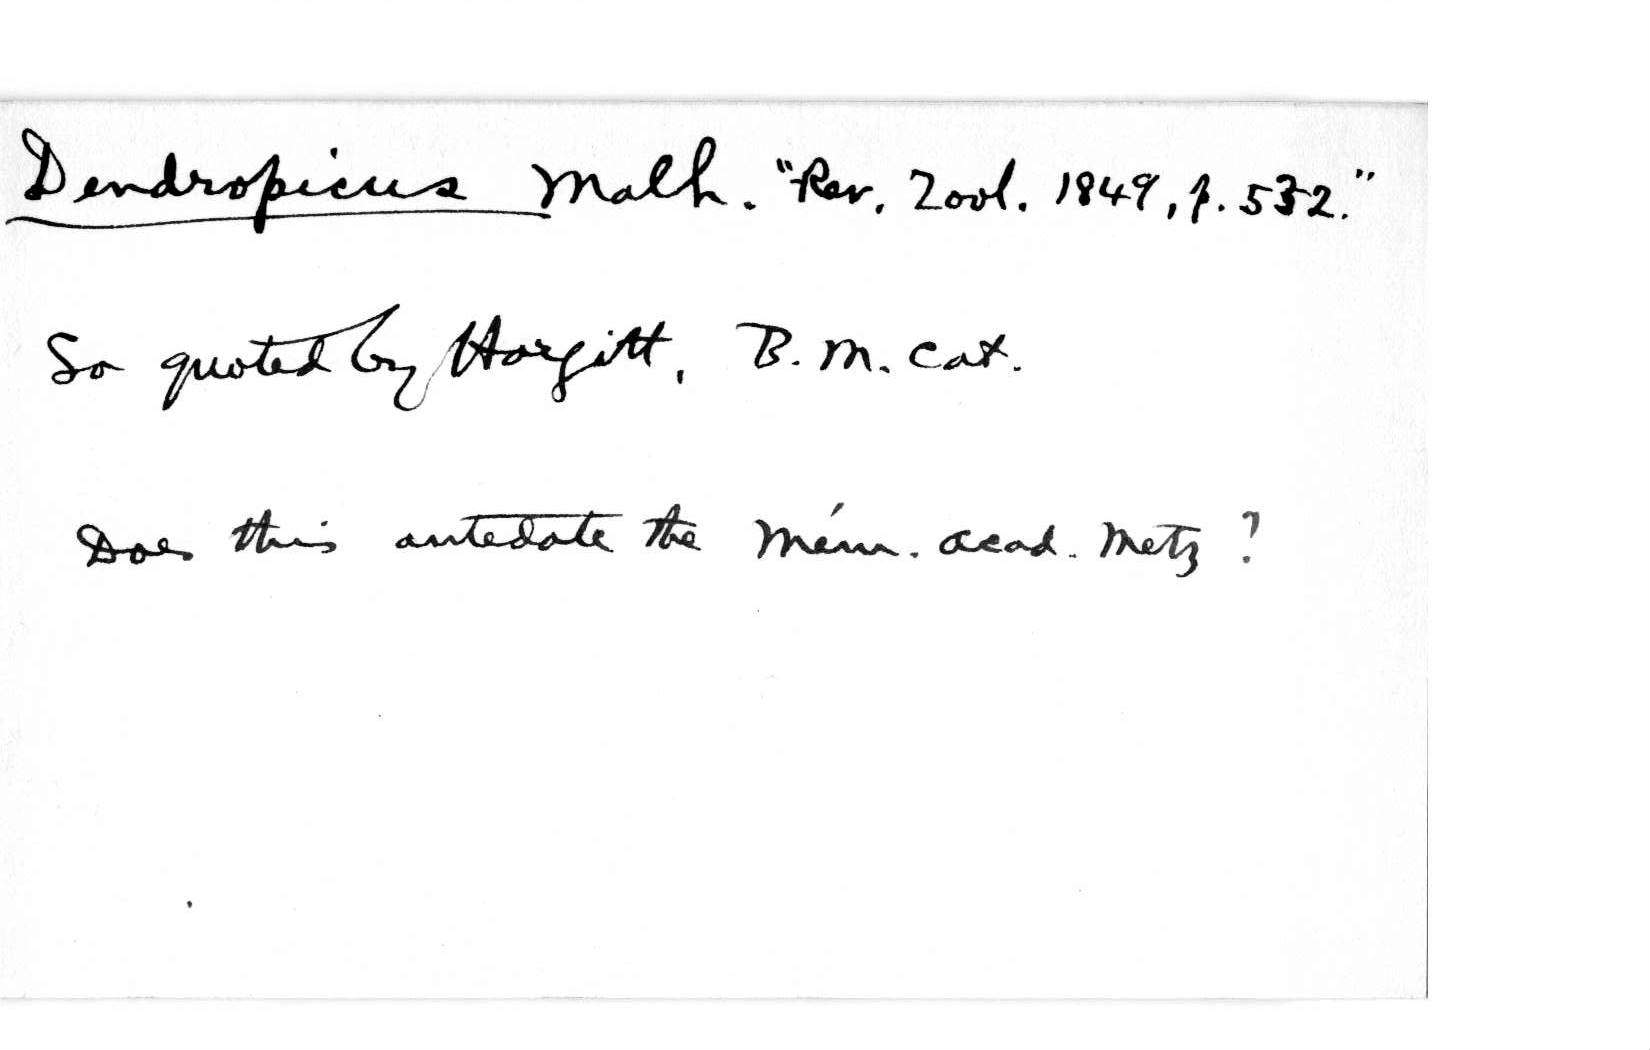 Dendropicus Malh. "Rev. Zool. 1849, p. 532."
So quoted by Hargitt, B. M. Cat.
Does this antedate the Mém. Acad. Metz?